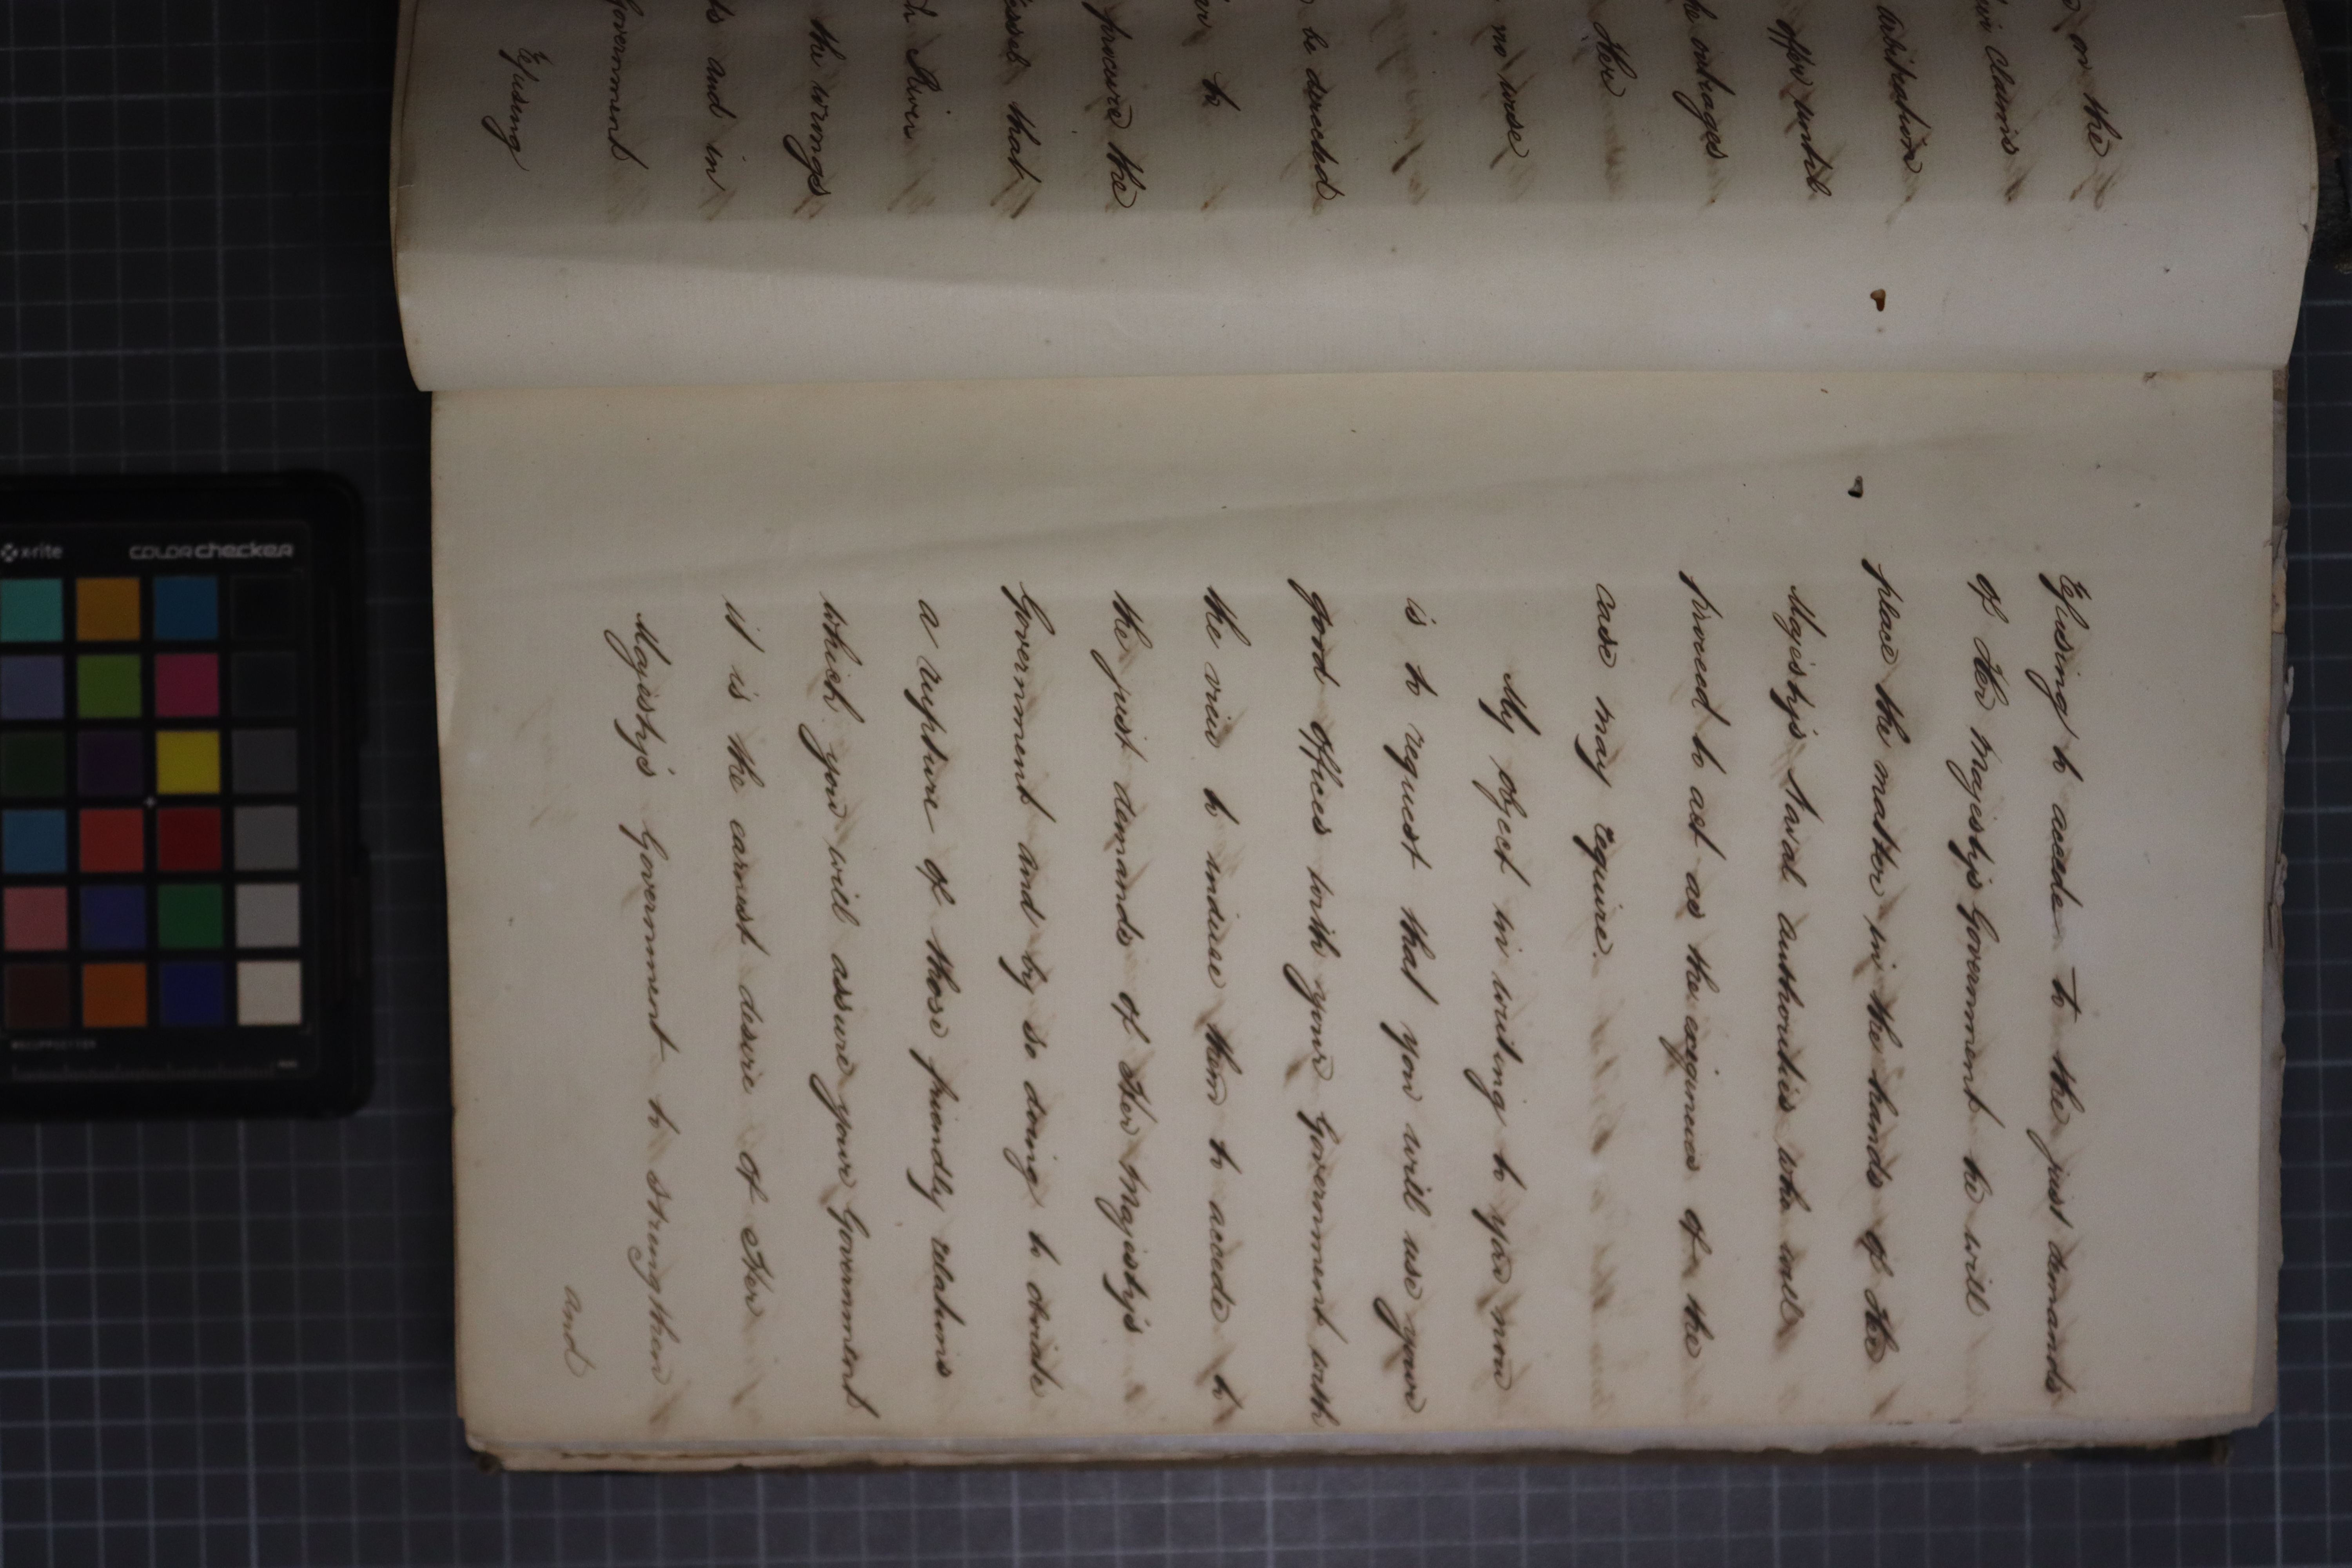 on the
claims
arbitration
offer until
the outrages
Her
no wise
be directed
to
procure the
vessels that
River
the wrongs
and in
Government
Refusing
Refusing to accede to the just demands
of Her Majesty's Government he will
place the matter in the hands of Her
Majesty's Naval authorities who will
proceed to act as the exigencies of the
case may require.
My object in writing to you now
is to request that you will use your
good offices with your Government with
the view to induce them to accede to
the just demands of Her Majesty's
Government and by so doing to obviate
a rupture of those friendly relations
which you will assure your Government
it is the earnest desire of Her
Majesty's Government to strengthen
and
x-rite colorchecker